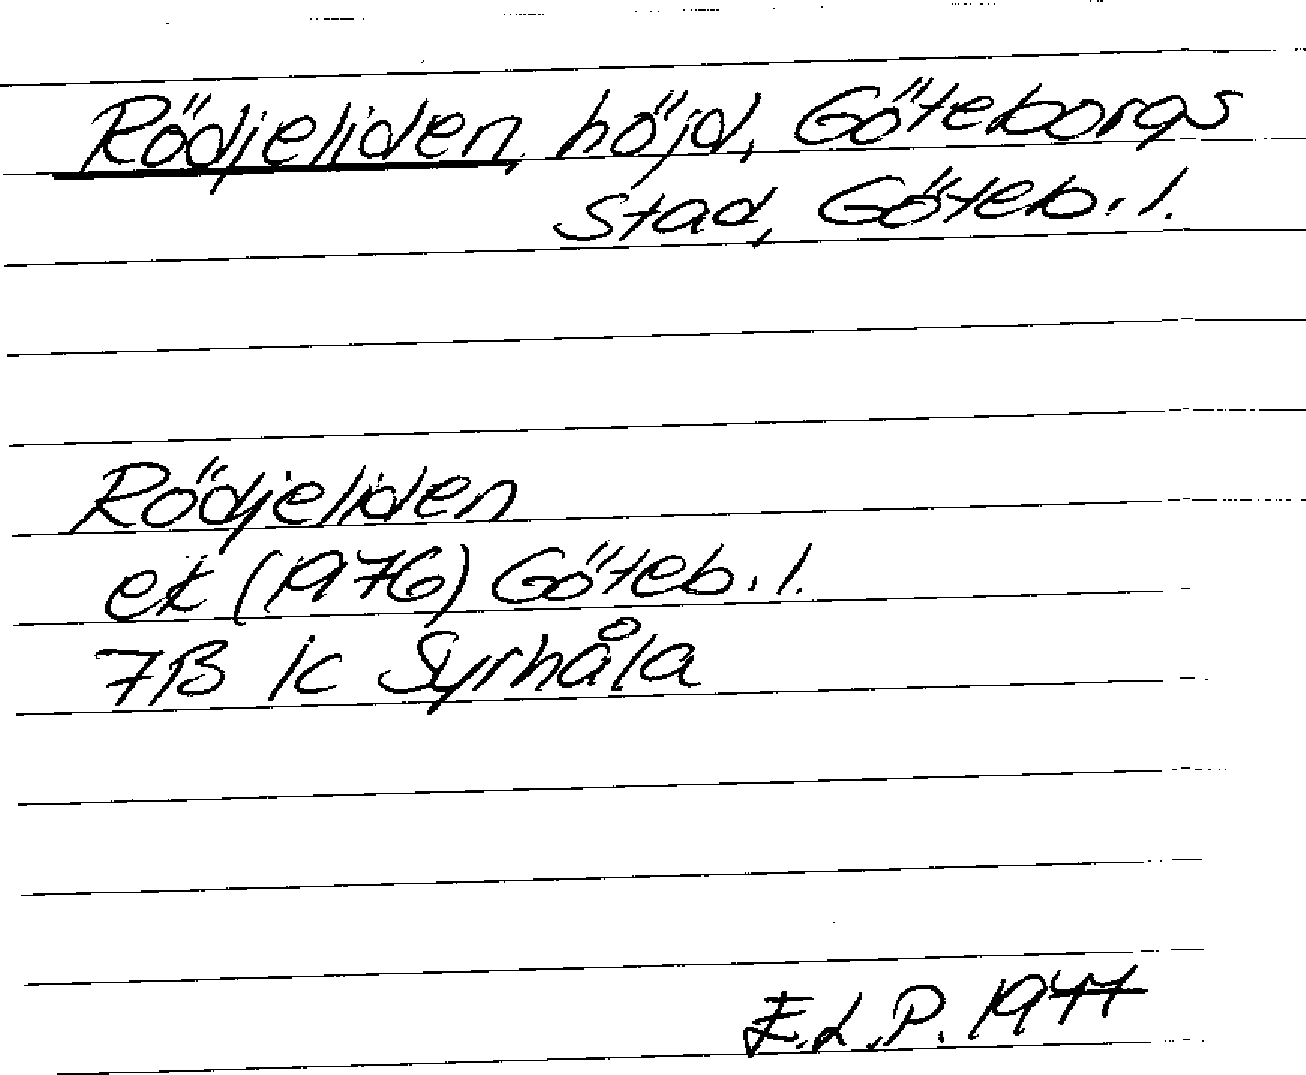 Rödjeliden, höjd, Göteborgs
stad, Göteb. l.
Rödjeliden
ek (1976) Göteb. l.
7B 1c Syrhåla
E.L.P. 1977